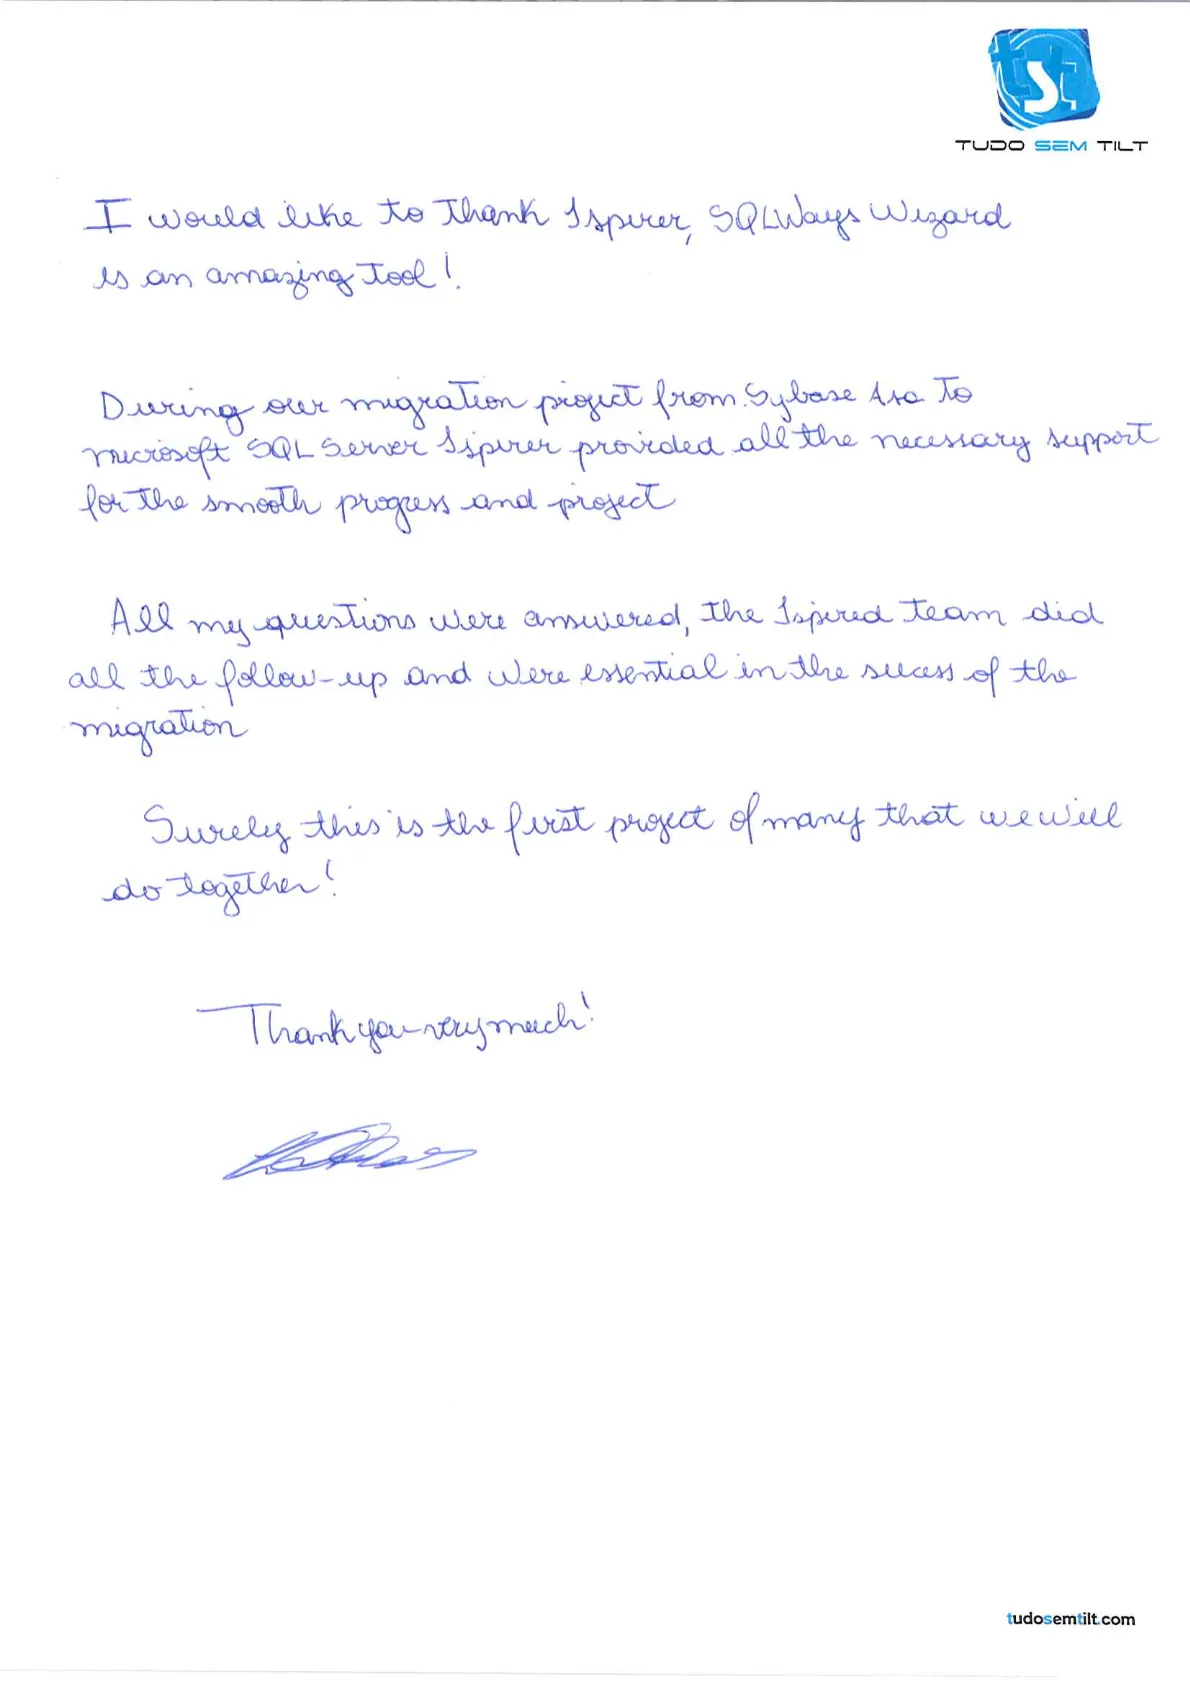 tst
TUDO SEM TILT
I would like to thank Ispirer, SQLWays Wizard
is an amazing tool!
During our migration project from Sybase Asa to
microsoft SQL Server Ispirer provided all the necessary support
for the smooth progress and project
All my questions were answered, the Ispired team did
all the follow-up and were essential in the sucess of the
migration
Surely this is the first project of many that we will
do together!
Thank you very much!
tudosemtilt.com